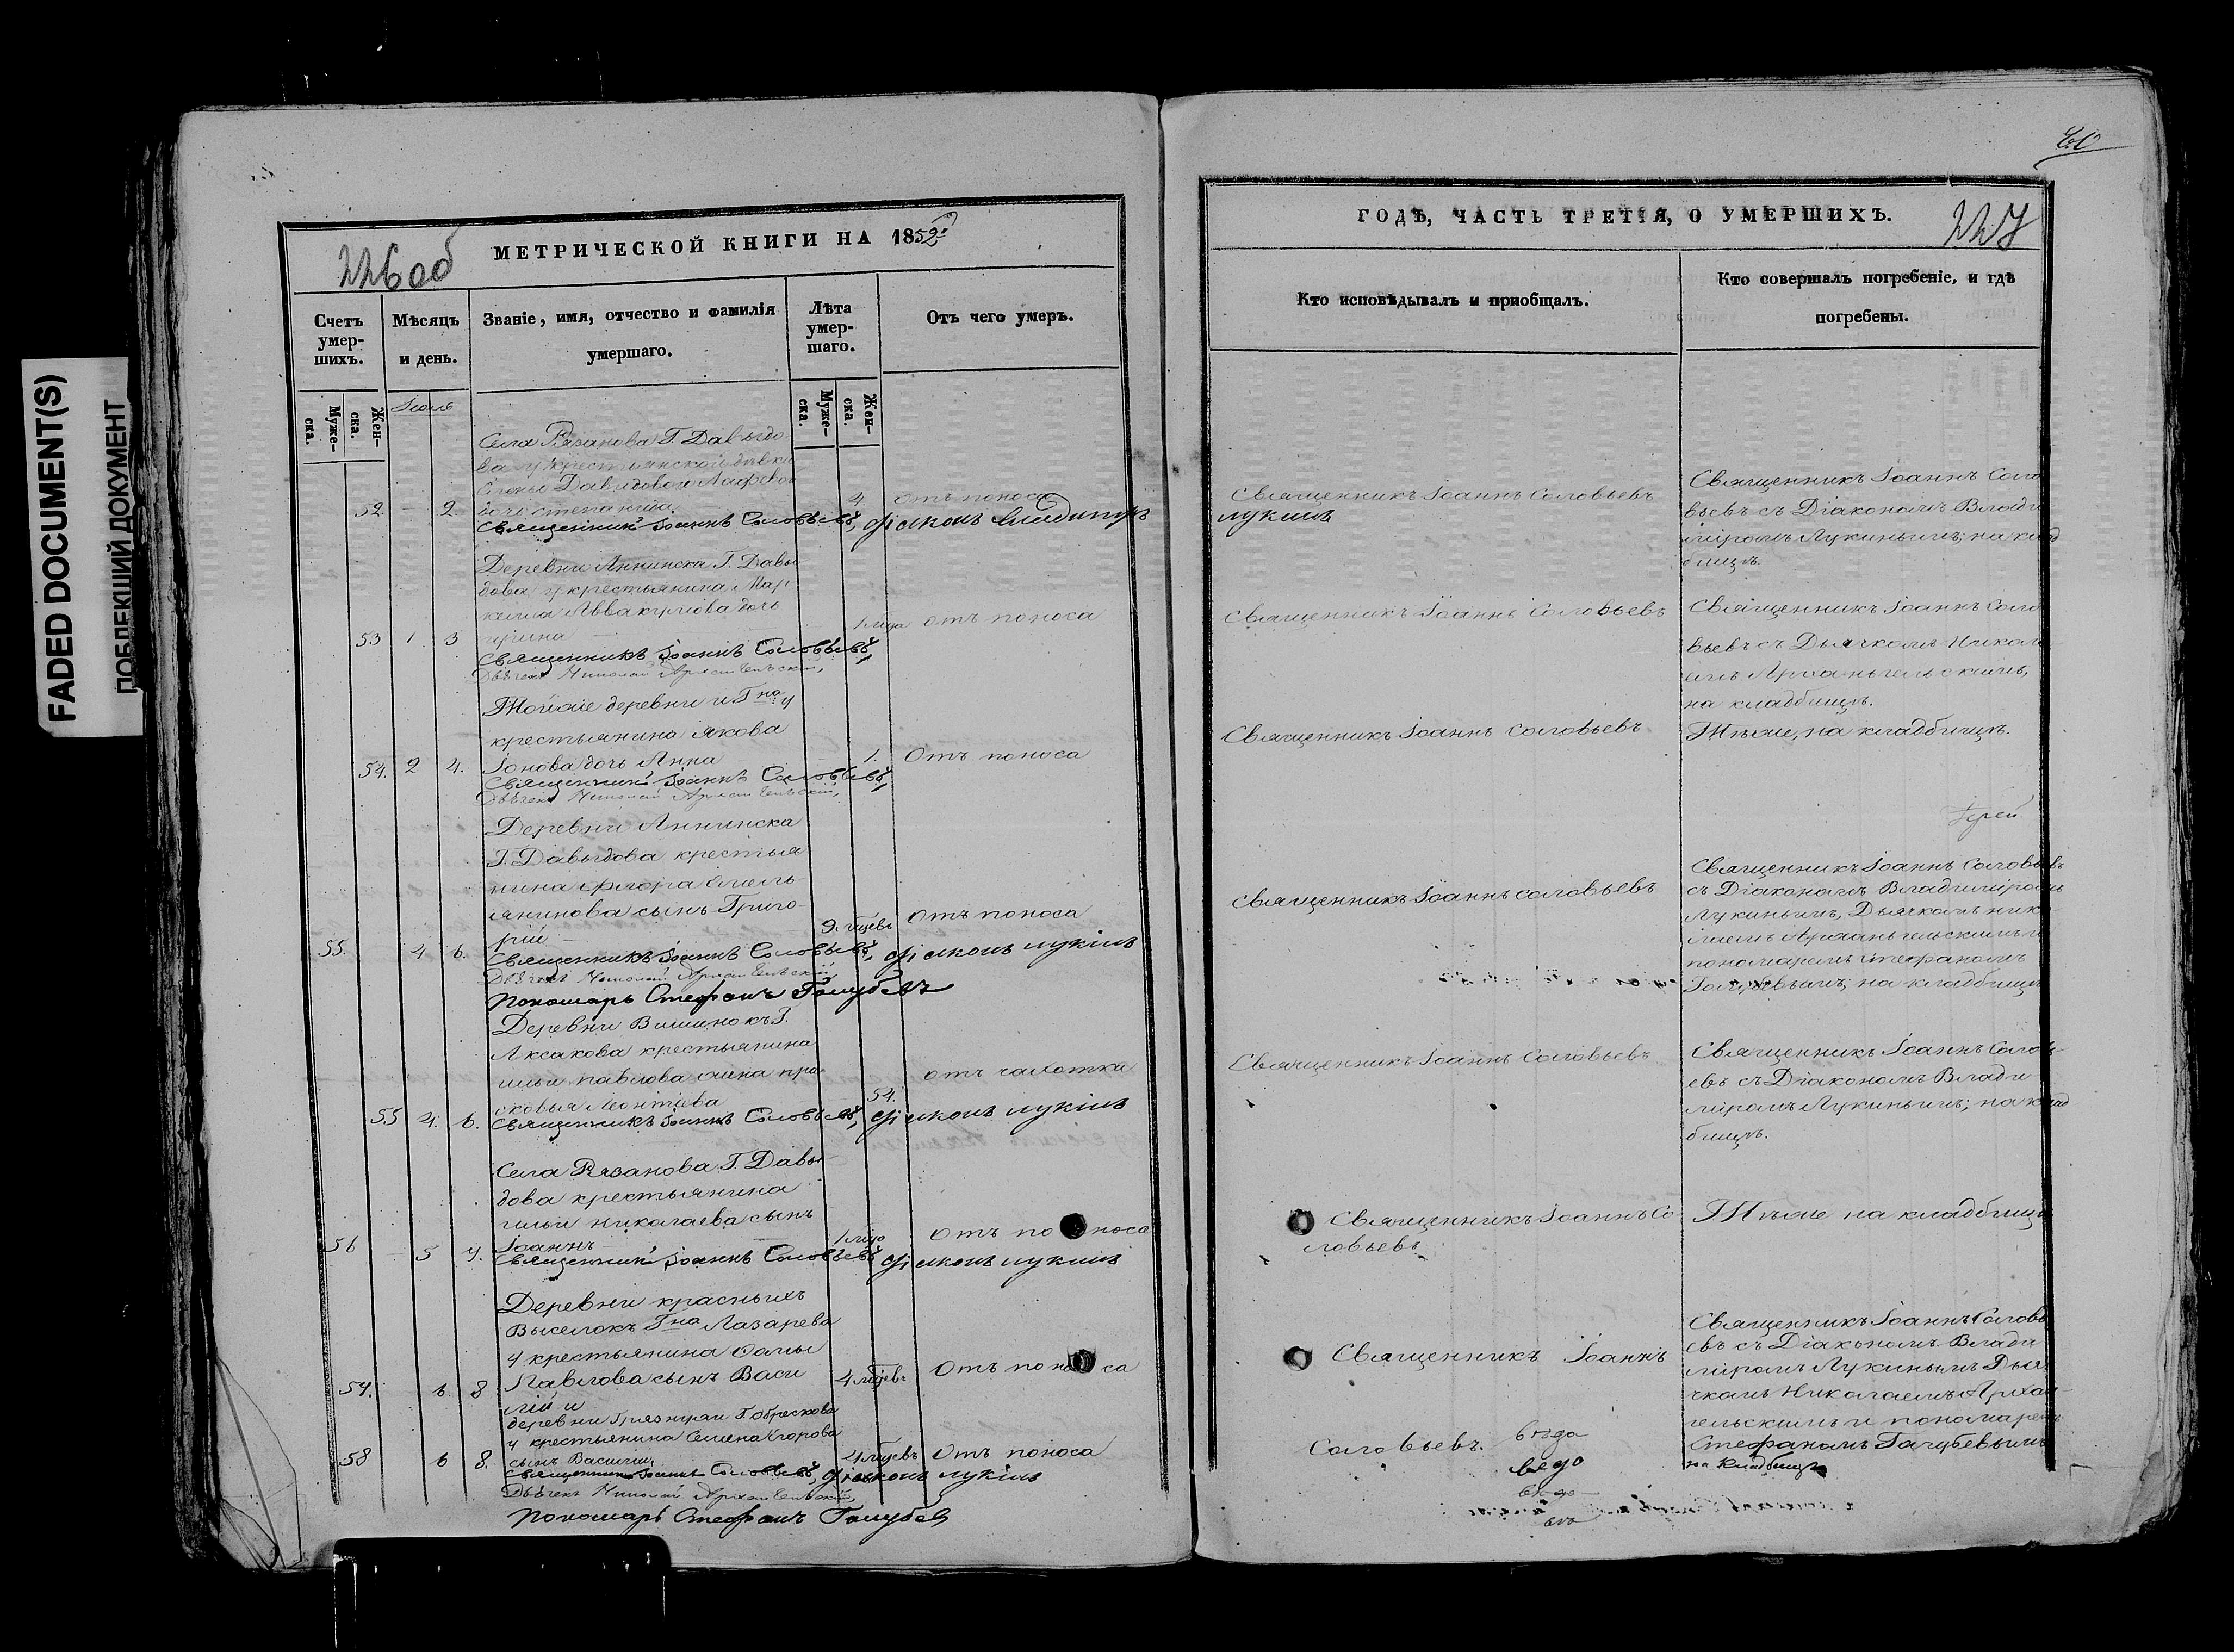 FADED DOCUMENT(S)
ПОБЛЕКШИЙ ДОКУМЕНТ
226 об
МЕТРИЧЕСКОЙ КНИГИ НА 1852й
Счетъ умер-шихъ.
Мѣсяцъ и день.
Званіе, имя, отчество и фамилія умершаго.
Лѣта умер-шаго.
Отъ чего умеръ.
Муже-ска.
Жен-ска.
Муже-ска.
Жен-ска.
Іюль
Села Рязанова Г. Давыдо
ва у крестьянской дѣвки
Елены Давидовой
дочь Степанида
52. 2. 4. отъ поноса
Священникъ Іоаннъ Соловьевъ, Діаконъ Владимиръ
Деревни Аннинска Г. Давы
дова у крестьянина Мар
дочь
53 1 3 1 отъ поноса
Священникъ Іоаннъ Соловьевъ,
Дьячекъ Николай Архангельский,
Тойже деревни и Гна у
крестьянина Якова
Іонова дочь Анна
54. 2 4. 1. Отъ поноса
Священникъ Іоаннъ Соловьевъ,
Дьячекъ Николай Архангельский,
Деревни Аннинска
Г. Давыдова крестья
нина Флора Емель
янинова сынъ Григо-
рій
55. 4 6. 9. Отъ поноса
Священникъ Іоаннъ Соловьевъ, Діаконъ Лукинъ
Дьячекъ Николай Архангельский,
Пономарь Стефанъ Голубевъ
Деревни Вишинокъ Г.
Аксакова крестьянина
Ильи Павлова жена Пра
сковья Леонтіева
55 4. 6. 54. отъ чахотки
Священникъ Іоаннъ Соловьевъ, Діаконъ Лукинъ
Села Рязанова Г. Давы-
дова крестьянина
Ильи Николаева сынъ
Іоаннъ
56 5 7. 1 Отъ поноса
Священникъ Іоаннъ Соловьевъ Діаконъ Лукинъ
Деревни красныхъ
Выселокъ Гна Лазарева
у крестьянина
Павлова сынъ Васи
лій и
57. 6. 8 4 Отъ поноса
деревни Г. Обрескова
у крестьянина Семена Егорова
сынъ Василій
58 6 8. 4 Отъ поноса
Священникъ Іоаннъ Соловьевъ, Діаконъ Лукинъ
Дьячекъ Николай Архангельский,
Пономарь Стефанъ Голубев
227
ГОДѢ, ЧАСТЬ ТРЕТІЯ, О УМЕРШИХЪ.
Кто исповѣдывалъ и пріобщалъ.
Кто совершалъ погребеніе, и гдѣ погребены.
Священникъ Іоаннъ Соловьевъ
Лукинъ
Священникъ Іоаннъ Соло
вьевъ съ Діакономъ Влади
міромъ Лукинымъ; на клад
бищѣ.
Священникъ Іоаннъ Соловьевъ
Священникъ Іоаннъ Соло
вьевъ съ Дьячкомъ Никола
емъ Архангельскимъ,
на кладбищѣ.
Священникъ Іоаннъ Соловьевъ
Тѣже, на кладбищѣ.
Іерей
Священникъ Іоаннъ Соловьевъ
Священникъ Іоаннъ Соловьевъ
съ Діакономъ Владиміромъ
Лукинымъ, Дьячкомъ Нико
лаемъ Архангельскимъ и
пономаремъ Стефаномъ
Голубевымъ; на кладбищѣ
Священникъ Іоаннъ Соловьевъ
Священникъ Іоаннъ Солов
евъ съ Діакономъ Влади
міромъ Лукинымъ; на клад
бищѣ.
Священникъ Іоаннъ Со
ловьевъ
Тѣже на кладбищѣ
Священникъ Іоаннъ
Соловьевъ.
Священникъ Іоаннъ Соловь
евъ съ Діакономъ Влади
міромъ Лукинымъ Дья
чкомъ Николаемъ Архан-
гельскимъ и пономаремъ
Стефаномъ Голубевымъ
на кладбищѣ